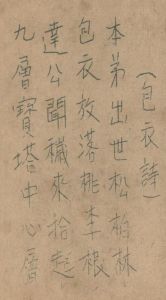 （包衣詩）
本弟出世松柏林
包衣放落桃李根
達公聞穢來拾起
九層寶塔中心層